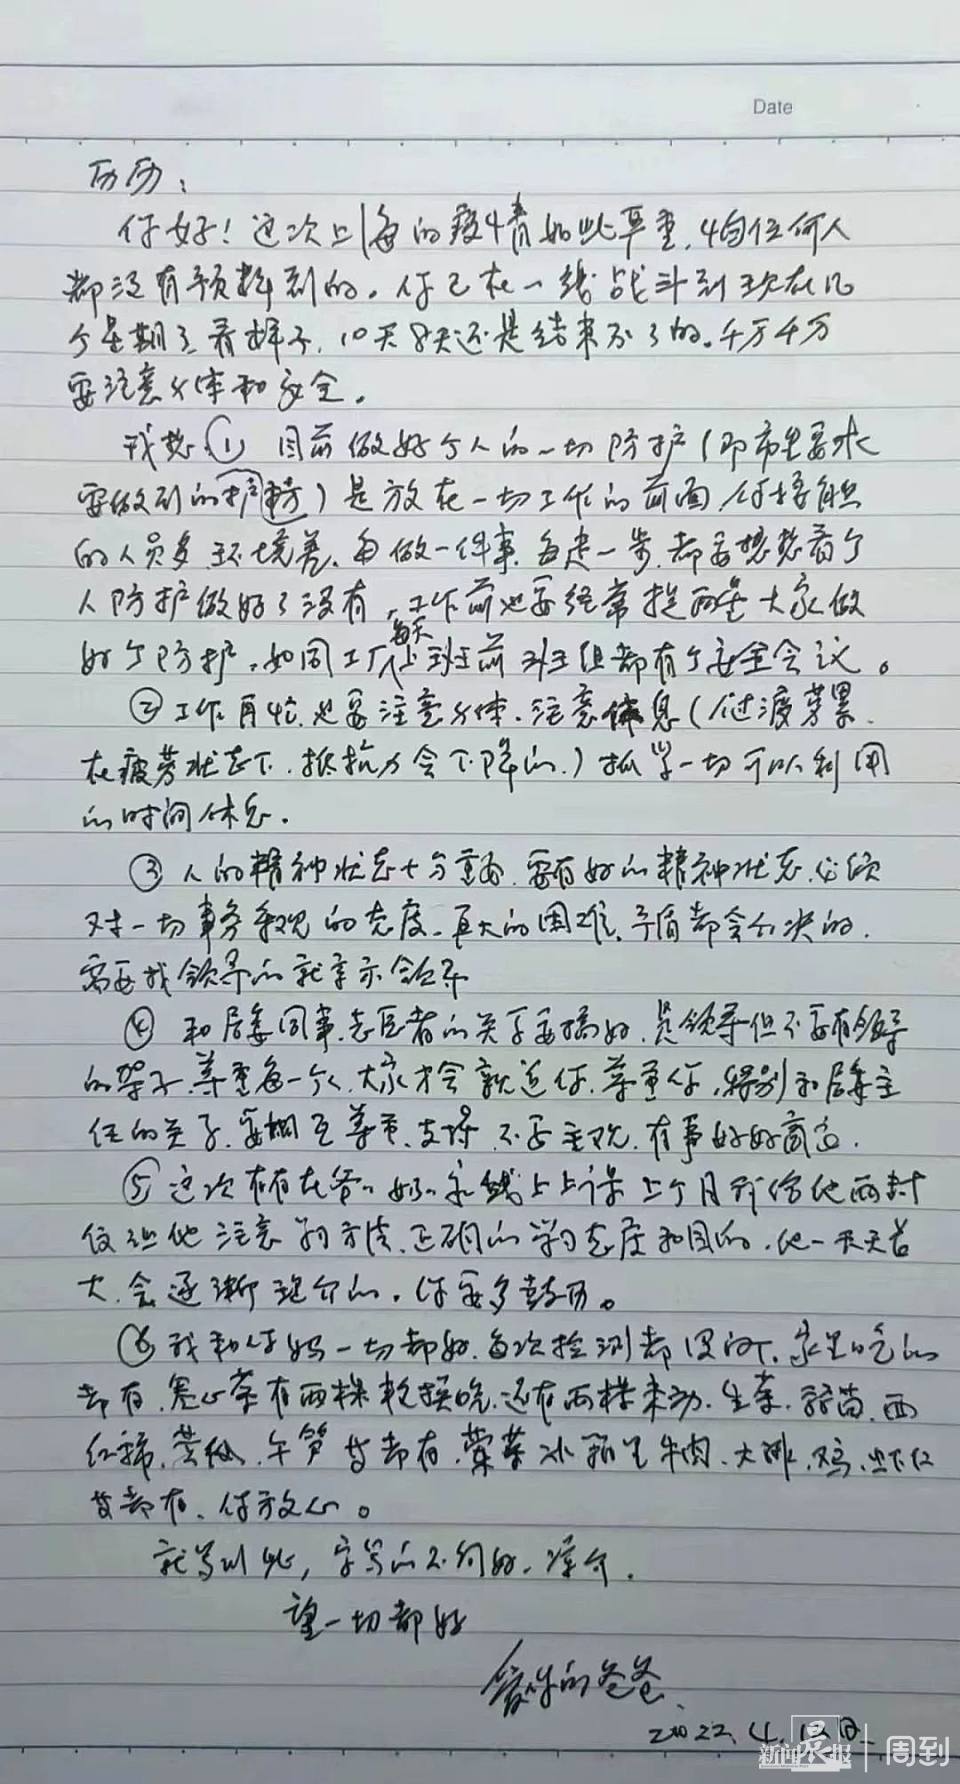 Date
历历：
你好！这次上海的疫情如此严重，恐怕任何人
都没有预料到的。你已在一线战斗到现在几
个星期了，看样子，10天8天还是结束不了的。千万千万
要注意身体和安全。
我想①目前做好个人的一切防护（即市里要求
要做到的）是放在一切工作的前面，你接触
的人员多，环境差，每做一件事，每走一步，都要想想看个
人防护做好了没有，工作前也要经常提醒大家做
好个防护。如同工厂每天上班前班组都有个安全会议。
②工作再忙，也要注意身体，注意休息（过渡劳累，
在疲劳状态下，抵抗力会下降的）抓紧一切可以利用
的时间休息。
③人的精神状态十分重要，要有好的精神状态，必须
对一切事务乐观的态度，再大的困难、矛盾都会解决的，
需要找领导的就请示领导
④和居委同事、志愿者的关系要搞好，是领导但不要有领导
的架子，尊重每一个人，大家才会亲近你、尊重你，特别和居委主
任的关系，要相互尊重、支持，不要主观，有事好好商量。
⑤这次在爷爷奶奶家线上上课，上个月我给他两封
信让他注意学习方法、正确的学习态度和目的，他一天天长
大，会逐渐理解的，你要多鼓励。
⑥我和你妈一切都好，每次检测都没问题，家里吃的
都有，卷心菜有两棵，还有两棵未动，生菜、鸡毛菜、西
红柿、莴笋等都有，荤菜冰箱里牛肉、大排、鸡、虾仁
等都有，你放心。
就写到此，字写的不何好，谅解。
望一切都好
爱你的爸爸
2022.4.12日
新闻晨报 周到